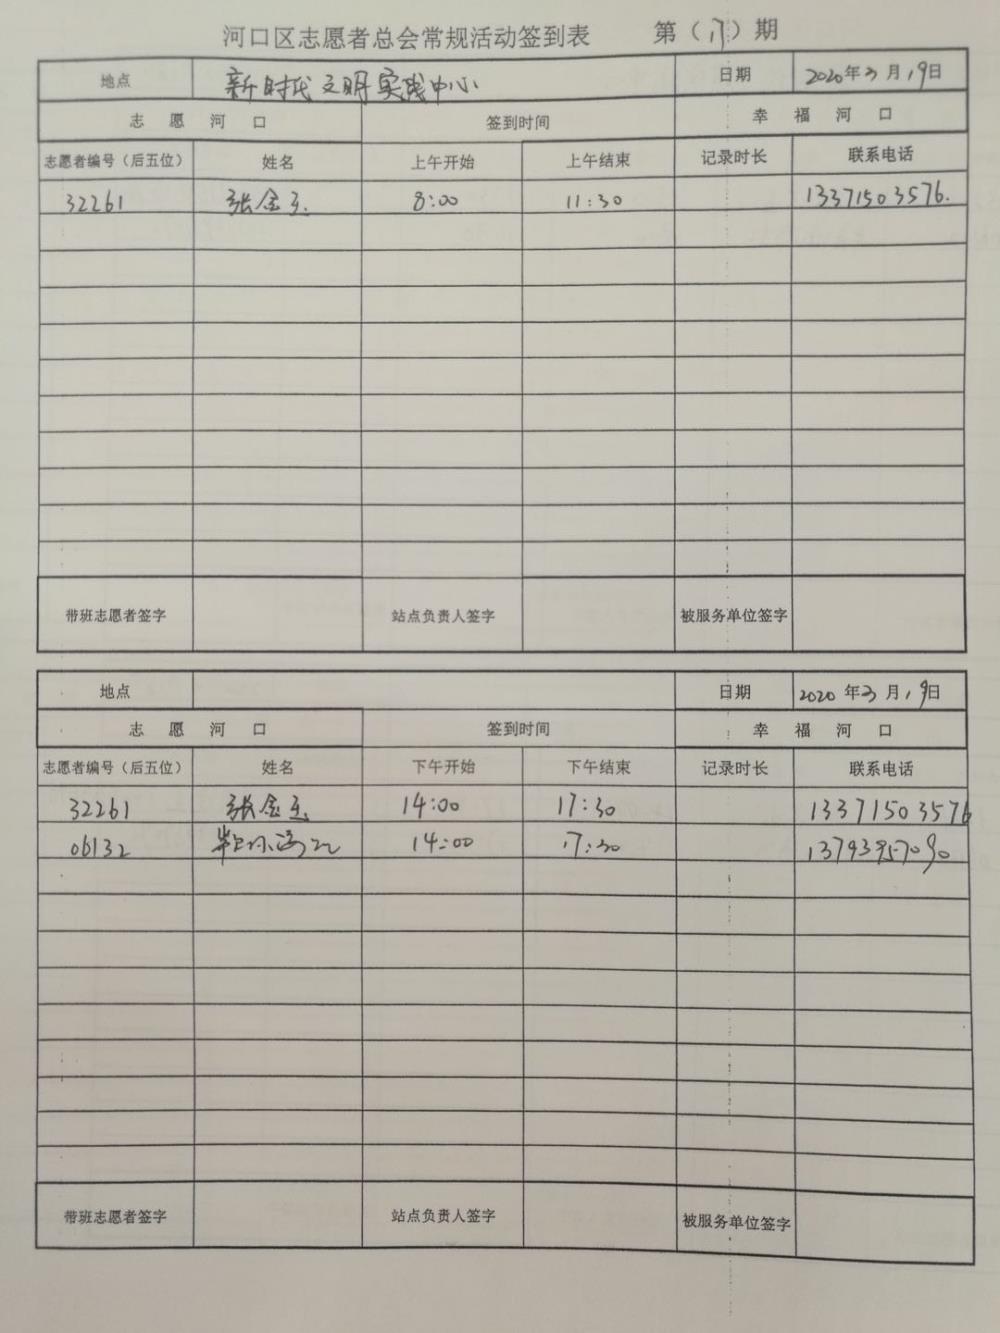 河口区志愿者总会常规活动签到表 第（17）期
地点 新时代文明实践中心 日期 2020年3月19日
志愿河口 签到时间 幸福河口
志愿者编号（后五位） 姓名 上午开始 上午结束 记录时长 联系电话
32261 张金玉 8:00 11:30 13371503576.
带班志愿者签字 站点负责人签字 被服务单位签字
地点 日期 2020年3月19日
志愿河口 签到时间 幸福河口
志愿者编号（后五位） 姓名 下午开始 下午结束 记录时长 联系电话
32261 张金玉 14:00 17:30 13371503576
06132 14:00 17:30 13793957090
带班志愿者签字 站点负责人签字 被服务单位签字